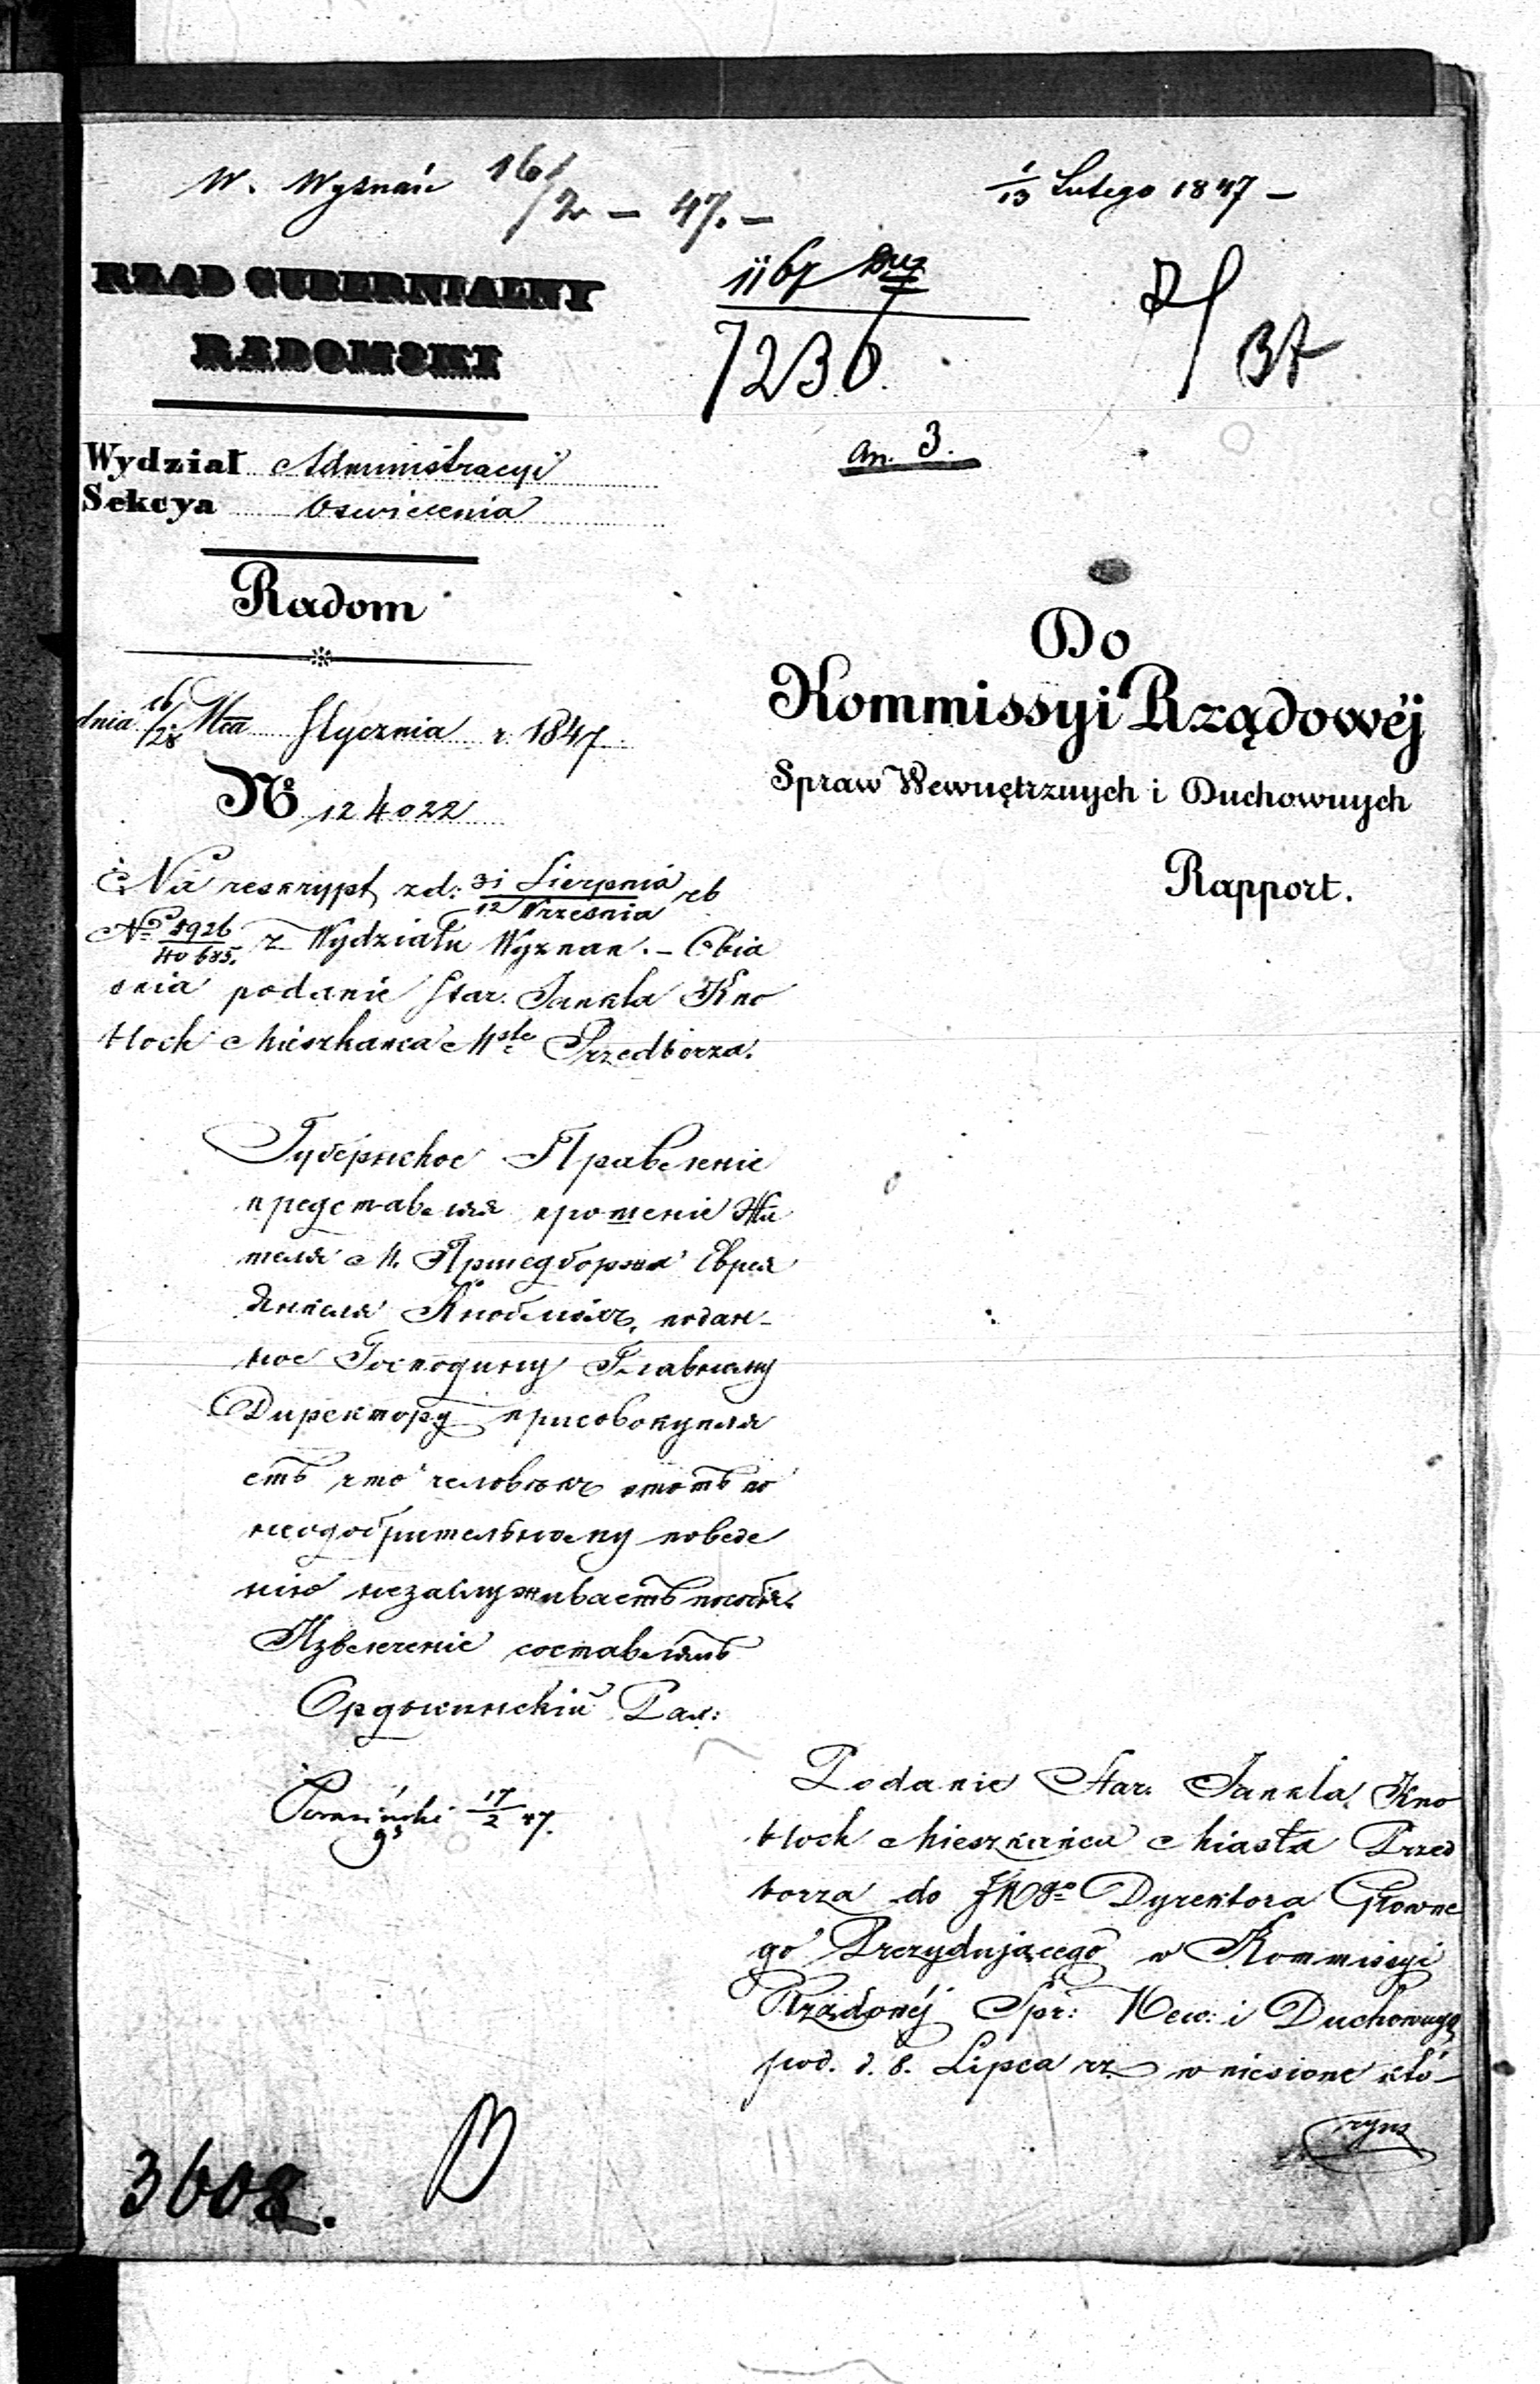 W. Wyznań 16/2 – 47. –
1/13 Lutego 1847 –
RZĄD GUBERNIALNY
RADOMSKI
1167
7236.
an. 3.
Wydział Administracyi
Sekcya Oswiecenia
Radom
dnia 16/28 Mca Stycznia r. 1847.
№ 124022
Do
Kommissyi Rządowéj
Spraw Wewnętrznych i Duchownych
Rapport.
Na reskrypt z d: 31 Sierpnia / 12 Września rb
№ 5926 / 40685. z Wydziału Wyznan. – Obia
snia podanie Star. Jankla Kno
bloch Mieszkanca Mste Przedborza.
Губернское Правленіе
представляя прошеніе Жи
теля М. Пршедборжа Еврея
Янкеля Кноблохъ, подан-
ное Господину Главному
Директору присовокупля
етъ что человѣкъ этотъ по
неодобрительному поведе
нію незаслуживаетъ пособія.
Извлеченіе составилъ
17/2 47.
Podanie Star. Jankla Kno
bloch Mieszkańca Miasta Przed
borza do JWgo Dyrektora Głowne
go Prezydującego w Kommissyi
Rządowéj Spr: Wew: i Duchownych
pod. d. 8. Lipca rz. wniesione któ-
rym
3608.